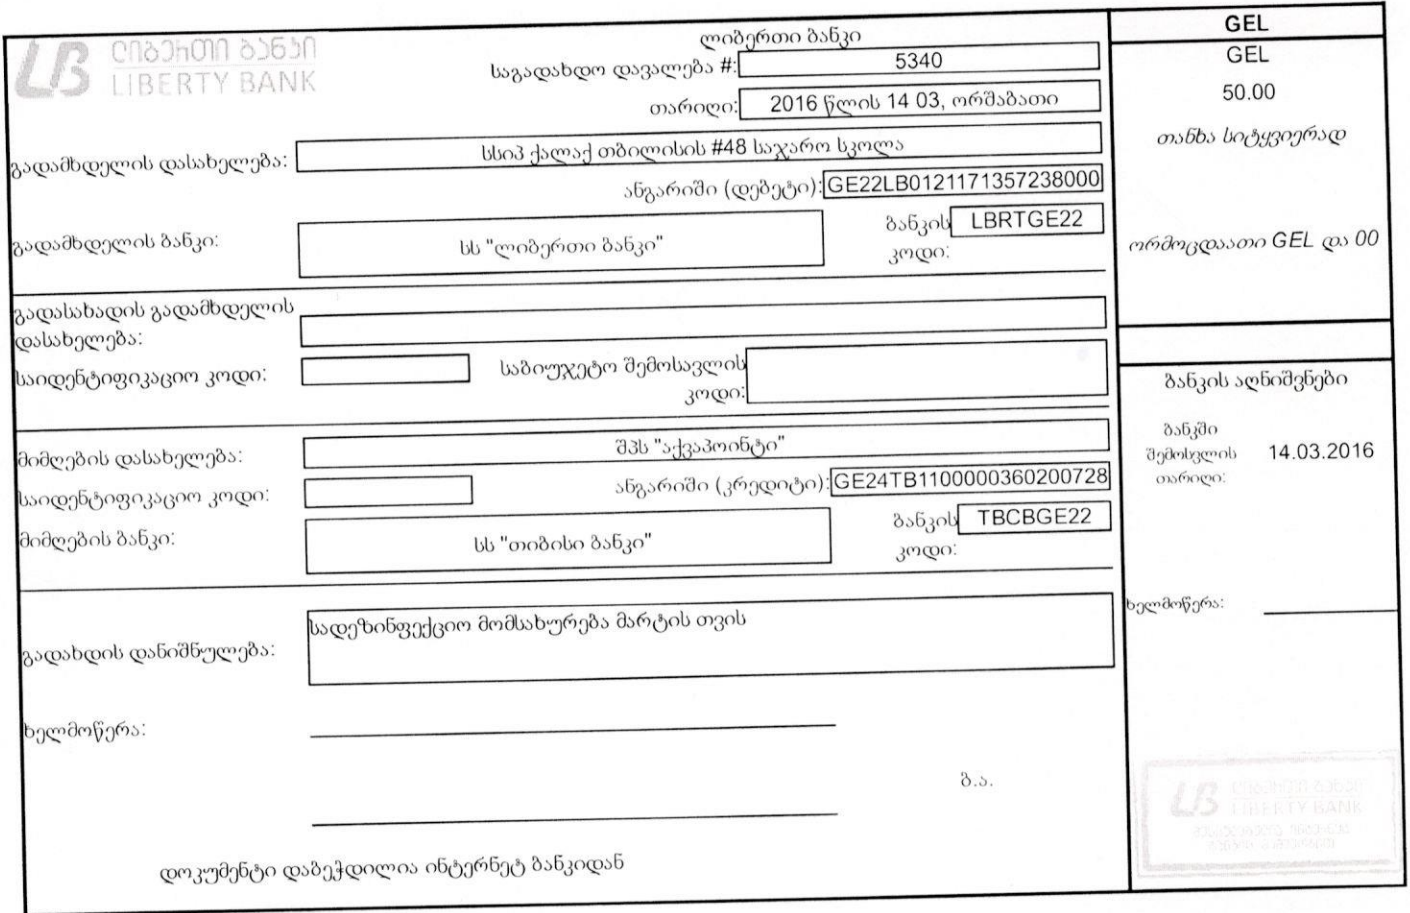 ლიბერთი ბანკი
LIBERTY BANK
ლიბერთი ბანკი
საგადახდო დავალება #: 5340
თარიღი: 2016 წლის 14 03, ორშაბათი
გადამხდელის დასახელება: სსიპ ქალაქ თბილისის #48 საჯარო სკოლა
ანგარიში (დებეტი): GE22LB0121171357238000
გადამხდელის ბანკი: სს "ლიბერთი ბანკი"
ბანკის კოდი: LBRTGE22
გადასახადის გადამხდელის
დასახელება:
საიდენტიფიკაციო კოდი:
საბიუჯეტო შემოსავლის
კოდი:
მიმღების დასახელება: შპს "აქვაპოინტი"
საიდენტიფიკაციო კოდი:
ანგარიში (კრედიტი): GE24TB1100000360200728
მიმღების ბანკი: სს "თიბისი ბანკი"
ბანკის კოდი: TBCBGE22
გადახდის დანიშნულება: სადეზინფექციო მომსახურება მარტის თვის
ხელმოწერა:
ბ.ა.
დოკუმენტი დაბეჭდილია ინტერნეტ ბანკიდან
GEL
GEL
50.00
თანხა სიტყვიერად
ორმოცდაათი GEL და 00
ბანკის აღნიშვნები
ბანკში
შემოსვლის 14.03.2016
თარიღი:
ხელმოწერა:
ლიბერთი ბანკი
LIBERTY BANK